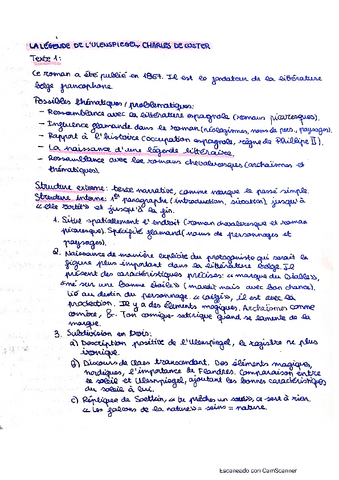 LA LÉGENDE DE L'ULENSPIEGEL, CHARLES DE COSTER
Texte 1:
Ce roman a été publié en 1867. Il est le fondateur de la littérature
belge francophone.
Possibles thématiques/problématiques:
- Ressemblance avec la littérature espagnole (romans picaresques).
- Influence flamande dans le roman (néologismes, noms de pers., paysages).
- Rapport à l'histoire (occupation espagnole, règne de Phillipe II).
- La naissance d'une légende littéraire.
- Ressemblance avec les romans chevaleresques (archaïsmes et
thématiques).
Structure externe: texte narrative, comme marque le passé simple.
Structure interne: 1er paragraphe (introduction, situation) jusqu'à
et jusqu'à la fin.
1. Situé spatialement l'endroit (roman chevaleresque et roman
picaresque). Spécificité flamand (noms de personnages et
paysages).
2. Naissance de manière explicite du protagoniste qui serait la
figure plus important dans la littérature belge. Il
présent des caractéristiques précises: « marque du diable »,
« né sur une bonne étoile » (maudit mais avec bon chance).
lié au destin du personnage. il est avec la
protection. Il y a des éléments magiques. Archaïsmes comme
Ton comique satirique quand se lamente de la
marque.
3. Subdivision en trois:
a) Description positive de l'Ulenspiegel, le registre ne plus
ironique.
b) Discours de Claes transcendant. Des éléments magiques,
nordiques, l'importance de Flandres. Comparaison entre
le soleil et Ulenspiegel, ajoutant les bonnes caractéristiques
du soleil à lui.
c) Réplique de Soetkin, « tu prêches un ça sert à rien
de la nature» = seins = nature.
Escaneado con CamScanner